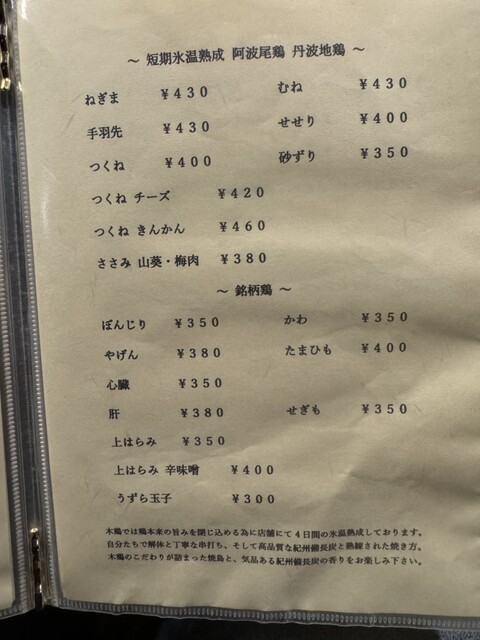 ～ 短期氷温熟成 阿波尾鶏 丹波地鶏 ～
ねぎま ￥430 むね ￥430
手羽先 ￥430 せせり ￥400
つくね ￥400 砂ずり ￥350
つくね チーズ ￥420
つくね きんかん ￥460
ささみ 山葵・梅肉 ￥380
～ 銘柄鶏 ～
ぼんじり ￥350 かわ ￥350
やげん ￥380 たまひも ￥400
心臓 ￥350
肝 ￥380 せぎも ￥350
上はらみ ￥350
上はらみ 辛味噌 ￥400
うずら玉子 ￥300
木鶏では鶏本来の旨みを閉じ込める為に店舗にて4日間の氷温熟成しております。
自分たちで解体と丁寧な串打ち、そして高品質な紀州備長炭と熟練された焼き方。
木鶏のこだわりが詰まった焼鳥と、気品ある紀州備長炭の香りをお楽しみ下さい。